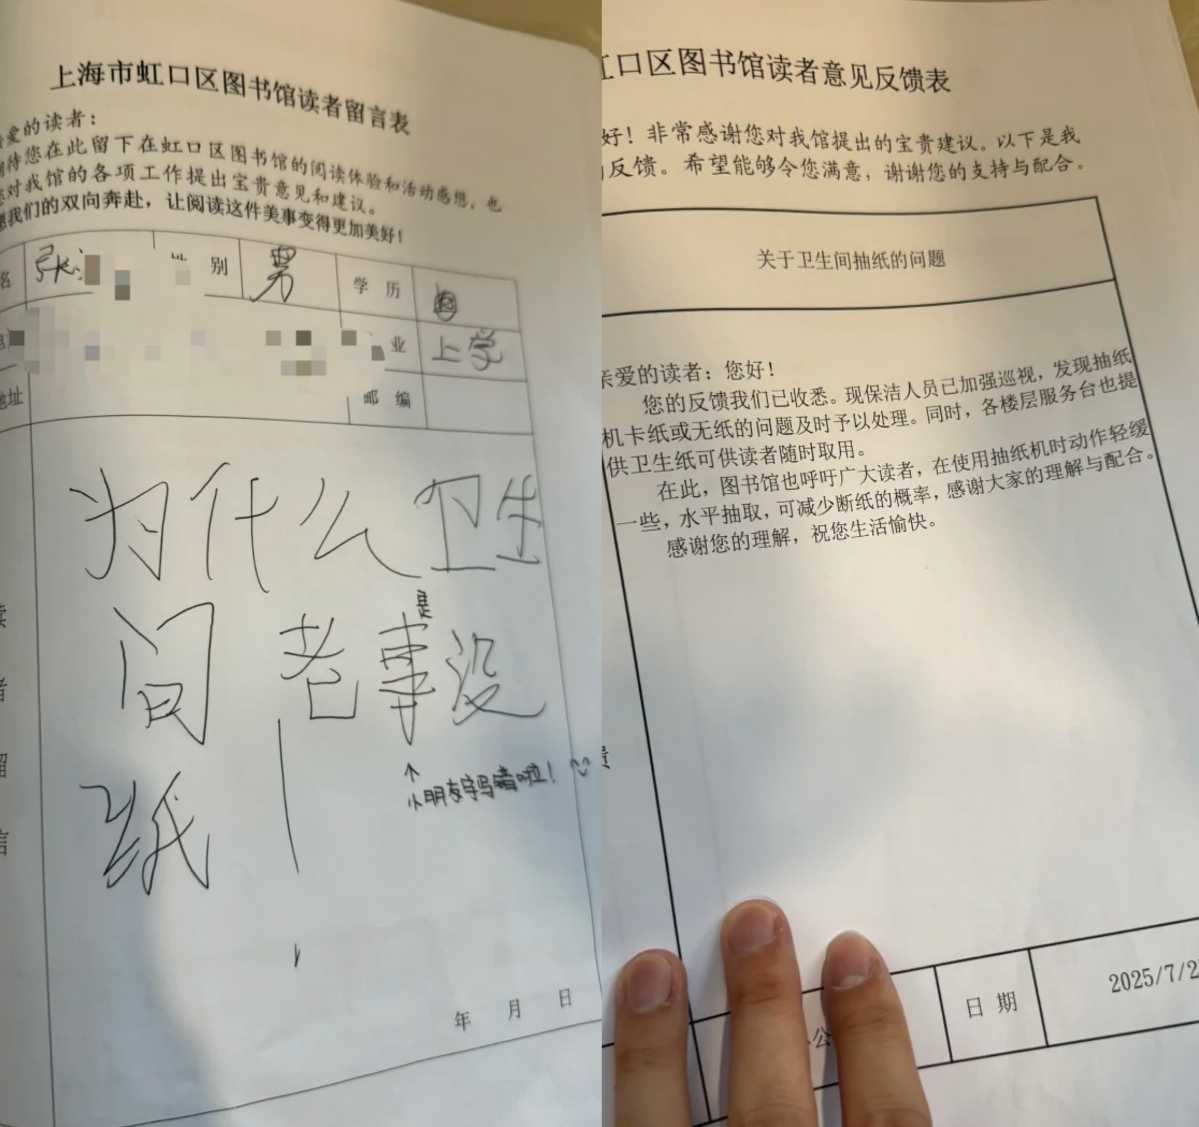 上海市虹口区图书馆读者留言表
爱的读者：
待您在此留下在虹口区图书馆的阅读体验和活动感想，也
对我馆的各项工作提出宝贵意见和建议。
我们的双向奔赴，让阅读这件美事变得更加美好！
名 张 性 别 男 学 历
业 上学
地址 邮 编
为什么卫生
间老事没
是
纸！
↑
小朋友字写错啦！
读
者
留
言
年 月 日
口区图书馆读者意见反馈表
好！非常感谢您对我馆提出的宝贵建议。以下是我
反馈。希望能够令您满意，谢谢您的支持与配合。
关于卫生间抽纸的问题
亲爱的读者：您好！
您的反馈我们已收悉。现保洁人员已加强巡视，发现抽纸
机卡纸或无纸的问题及时予以处理。同时，各楼层服务台也提
供卫生纸可供读者随时取用。
在此，图书馆也呼吁广大读者，在使用抽纸机时动作轻缓
一些，水平抽取，可减少断纸的概率，感谢大家的理解与配合。
感谢您的理解，祝您生活愉快。
馈
公 日 期 2025/7/2